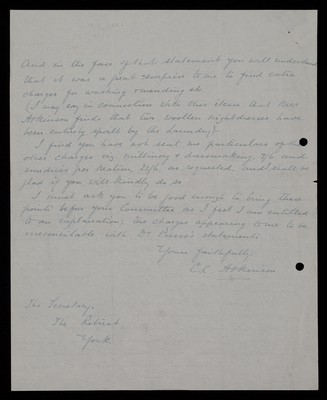 And in the face of that statement you will understand
that it was a great surprise to me to find extra
charges for washing & mending etc.
(I may say in connection with this item that Mrs
Atkinson finds that two woollen nightdresses have
been entirely spoilt by the laundry).
I find you have not sent me particulars of the
other charges viz. millinery & dressmaking, 7/6 and
sundries per Matron 22/6 as requested, and shall be
glad if you will kindly do so.
I must ask you to be good enough to bring these
points before your Committee as I feel I am entitled
to an explanation: the charges appearing to me to be
irreconcilable with Dr Pierce's statements.
Yours faithfully,
Atkinson
The Secretary,
The Retreat
York